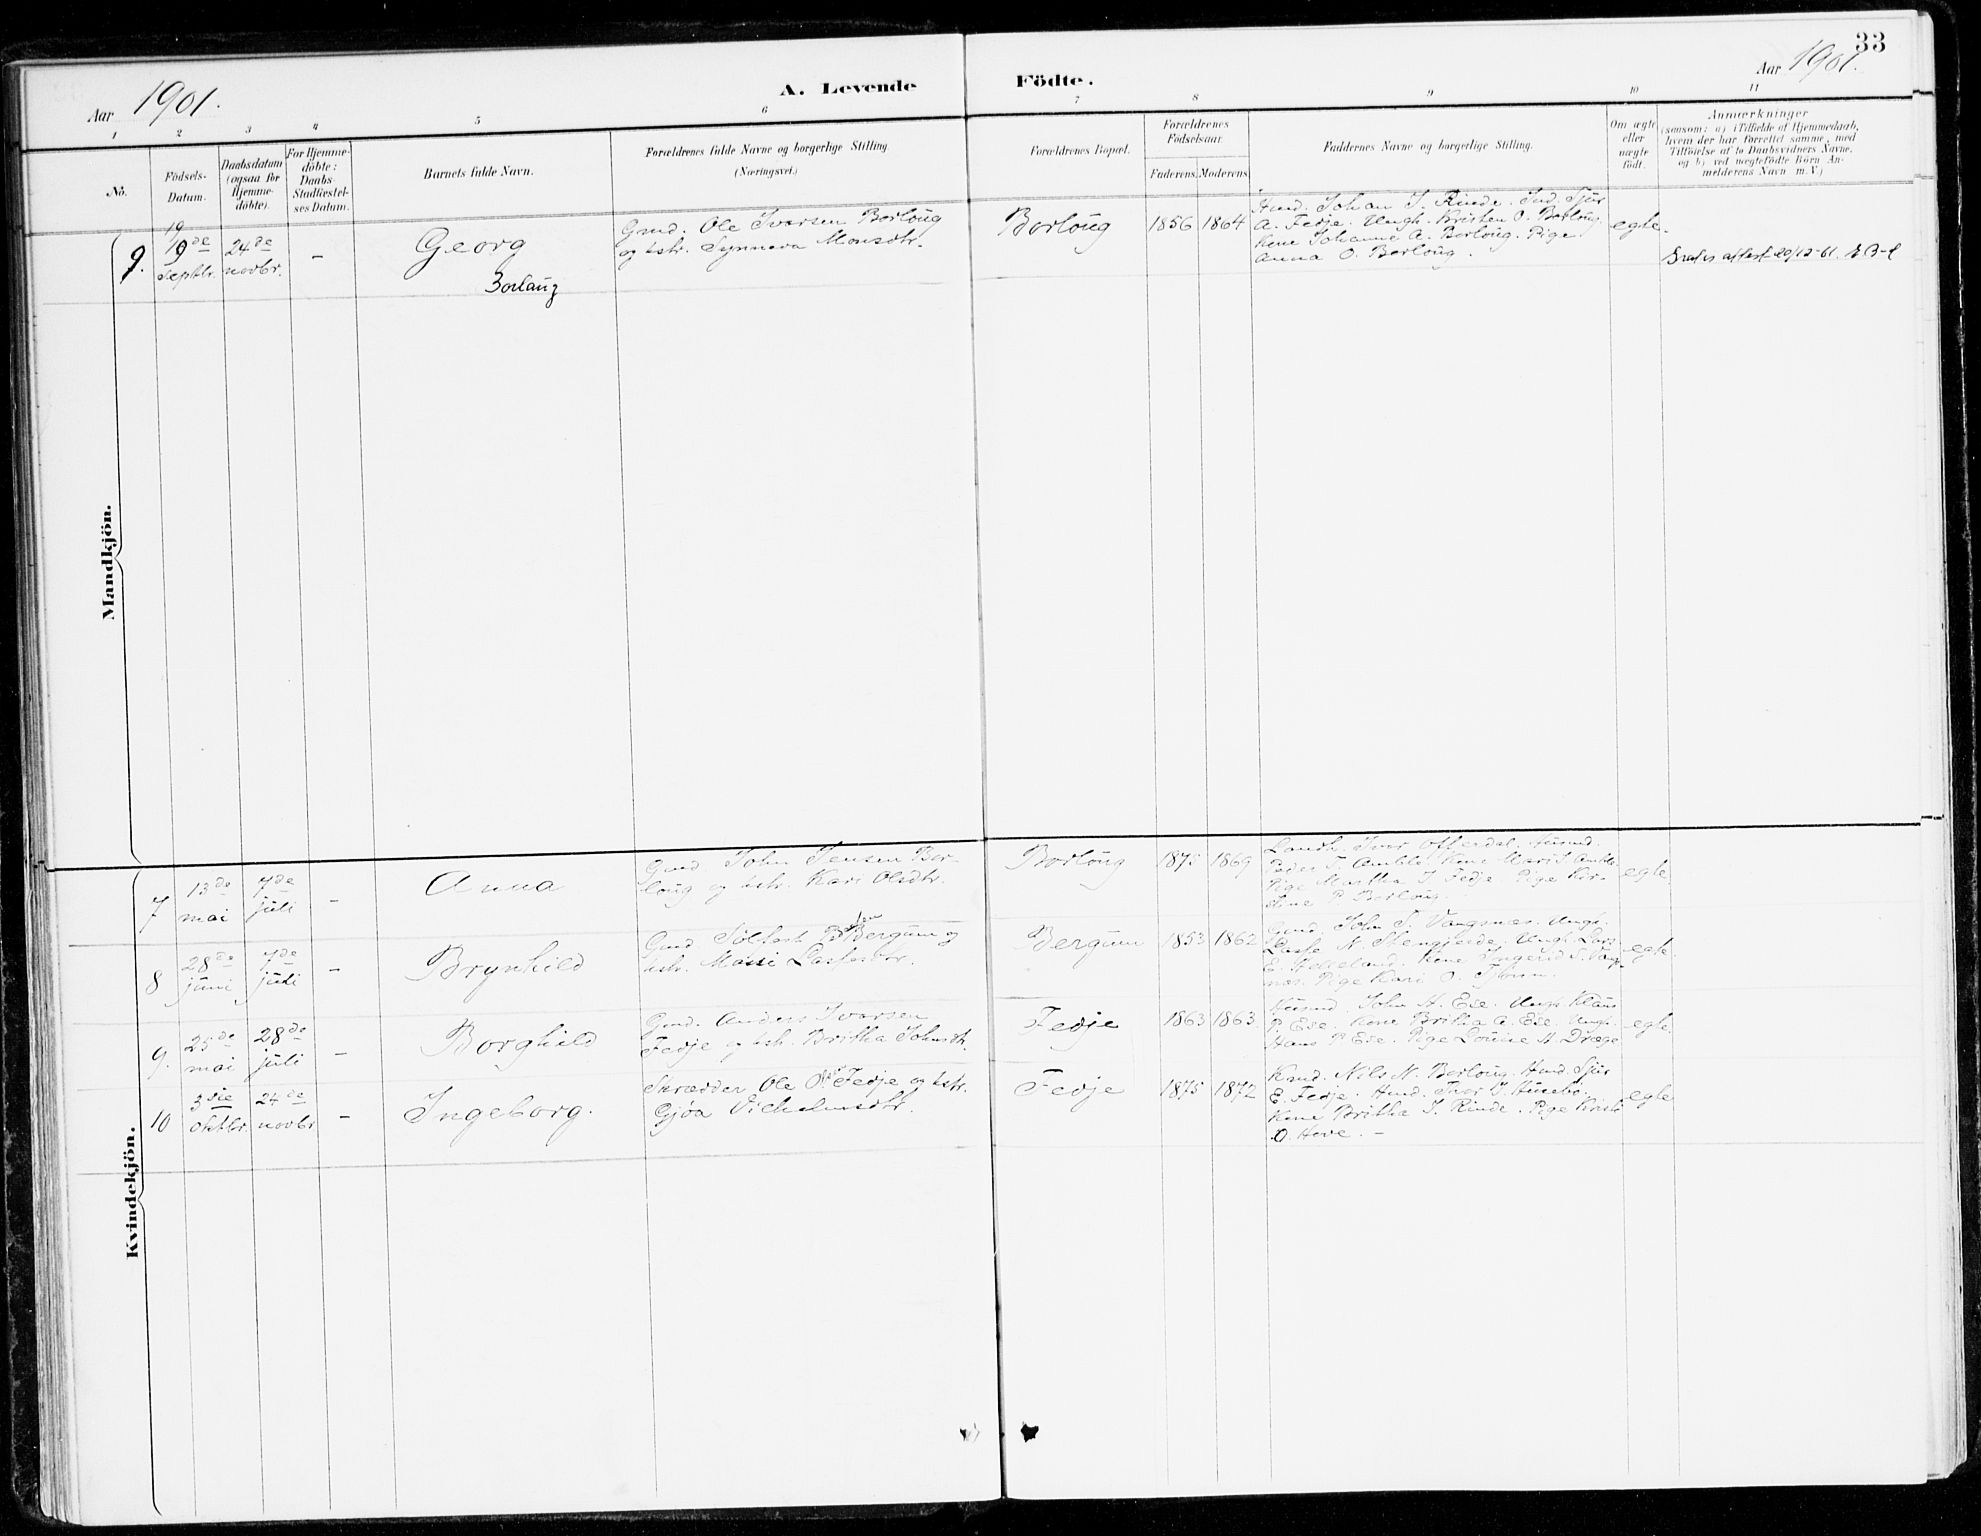 33
Aar 1901.
A. Levende Födte.
Aar 1901.
1 2 3 4 5 6 7 8 9 10 11
No.
Födsels-
Datum.
Daabsdatum
(ogsaa for
Hjemme-
döbte).
For Hjemme-
döbte:
Daabs-
Stadfæstel-
ses Datum.
Barnets fulde Navn.
Forældrenes fulde Navne og borgerlige Stilling
(Næringsvei.)
Forældrenes Bopæl.
Forældrenes
Födselsaar.
Faderens. Moderens.
Faddernes Navne og borgerlige Stilling.
Om ægte
eller
uægte
födt.
Anmærkninger
(saasom: a) i Tilfælde af Hjemmedaab,
hvem der har forrettet samme, med
Tilföielse af to Daabsvidners Navne,
og b) ved uægtefödte Börn An-
melderens Navn m. V.)
Mandkjön.
9.
19
19de
septbr.
24de
novbr.
-
Georg
Borlaug
Gmd. Ole Ivarsen Borlöug
og hstr. Synneva Monsdtr.
Borlöug
1856 1864
Husd. Johan J. Rinde. Ind. Sjur
A. Fedje. Ungk. Kristen O. Borlöug
Kone Johanne A. Borlöug. Pige
Anna O. Borlöug.
egte.
attest 20/12-61.
Kvindekjön.
7
13de
mai
7de
juli
-
Anna
Gmd John Jensen Bor-
löug og hstr. Kari Olsdtr.
Borlöug
1875 1869
Landh. Ivar Ofterdal. Husmd.
Peder T. Amble. Kone Mari S. Amble
Pige Martha J. Fedje. Pige Kirs
tine P. Borlöug.
egte
8
28de
juni
7de
juli
-
Brynhild
Gmd Solfest Bergum og
hstr. Massi Lassesdtr.
Bergum
1853 1862
Gmd. John T. Vangsnæs. Ungk.
Lasse N. Stengjerde. Ungk. Lars
E. Helleland. Kone Ingerid S. Vangs-
næs. Pige Kari O.
egte.
9.
25de
mai
28de
juli
-
Borghild
Gmd. Anders Ivarsen
Fedje og hstr. Britha Johnsdtr.
Fedje
1863 1863
Husmd. John A. Ese. Ungk. Klaus
P. Ese. Kone Britha A. Ese. Ungk.
Hans P. Ese. Pige Louise H. Dræge
egte
10
3die
oktbr.
24de
novbr
-
Ingeborg.
Skrædder Ole Fedje og hstr.
Gjöa Vilhelmsdtr.
Fedje
1875 1872
Kmd. Nils N. Borlöug. Husd. Sjur
E. Fedje. Husd. Ivar Husebö.
Kone Britha J. Rinde. Pige Kristi
O. Hove. -
egte